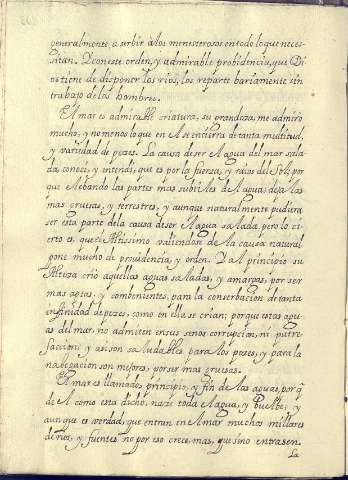 generalmente, a serbir a los menesterosos en todo lo que neces-
sitan. De con este orden, y admirable probidencia, que Di
os tiene de disponer los rios, los reparte bariamente sin
trabajo de los hombres.
El mar es admirable criatura, su grandeza, me admiro
mucho, y no menos lo que en el se entierra de tanta multitud,
y variedad de pezes. La causa de ser el agua del mar sala
da, conoci, y entendi, que es por la fuerza, y raios del Sol; por
que elebando las partes mas subtiles de el agua; deja las
mas gruesas, y terrestres, y aunque naturalmente pudiera
ser esta parte de la causa de ser el agua salada pero lo ci
erto es, que el Altissimo valiendose de la causa natural
pone mucho de providencia, y orden. Y al principio su
Alteza crio aquellas aguas saladas, y amargas, por ser
mas aptas, y combenientes, para la conserbacion de tanta
infinidad de pezes, como en ella se crian; porque estas agu
as del mar, no admiten en sus senos corrupcion, ni putre
faccion; y asi son saludables para los pezes, y para la
nabegacion son mejores, por ser mas gruesas.
El mar es llamado, principio, y fin de las aguas, por q̃
de el como esta dicho, naze toda el agua, y buelbe; y
aunque es verdad, que entran en el mar muchos millares
de rios, y fuentes no por eso crece mas, que si no entrasen.
La